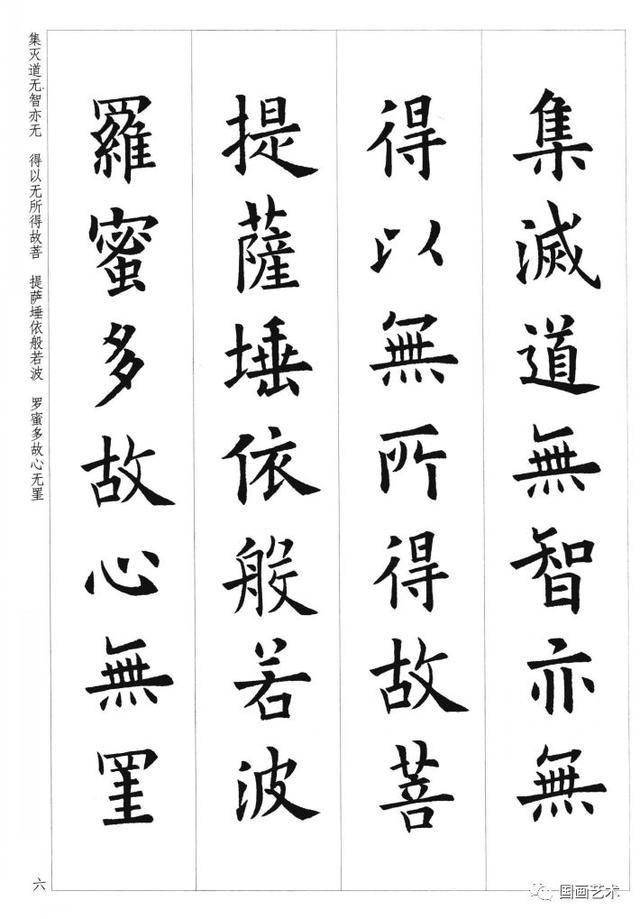 集滅道無智亦無
得以無所得故菩
提薩埵依般若波
羅蜜多故心無罣
集灭道无智亦无 得以无所得故菩 提萨埵依般若波 罗蜜多故心无罣
六
国画艺术